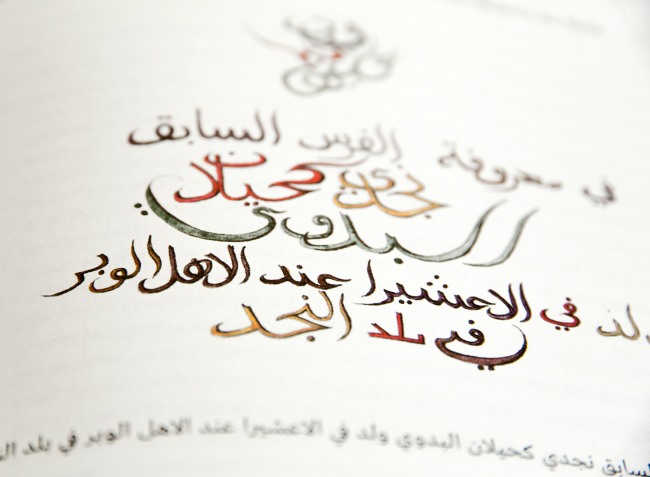 في معروفة الفرس السابق
نجدي كحيلان
البدوي
ولد في الاعشيرا عند الاهل الوبر
في بلد النجد
السابق نجدي كحيلان البدوي ولد في الاعشيرا عند الاهل الوبر في بلد